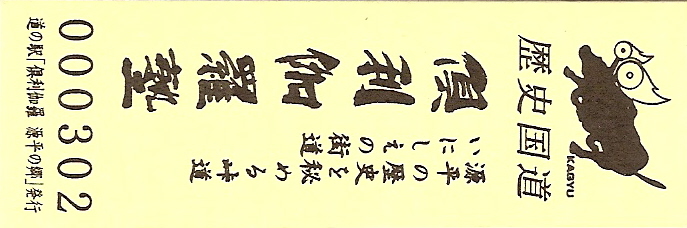 歴史国道
KAGYU
源平の歴史を秘める峠道
いにしえの街道
倶利伽羅塾
000302
道の駅「倶利伽羅 源平の郷」発行